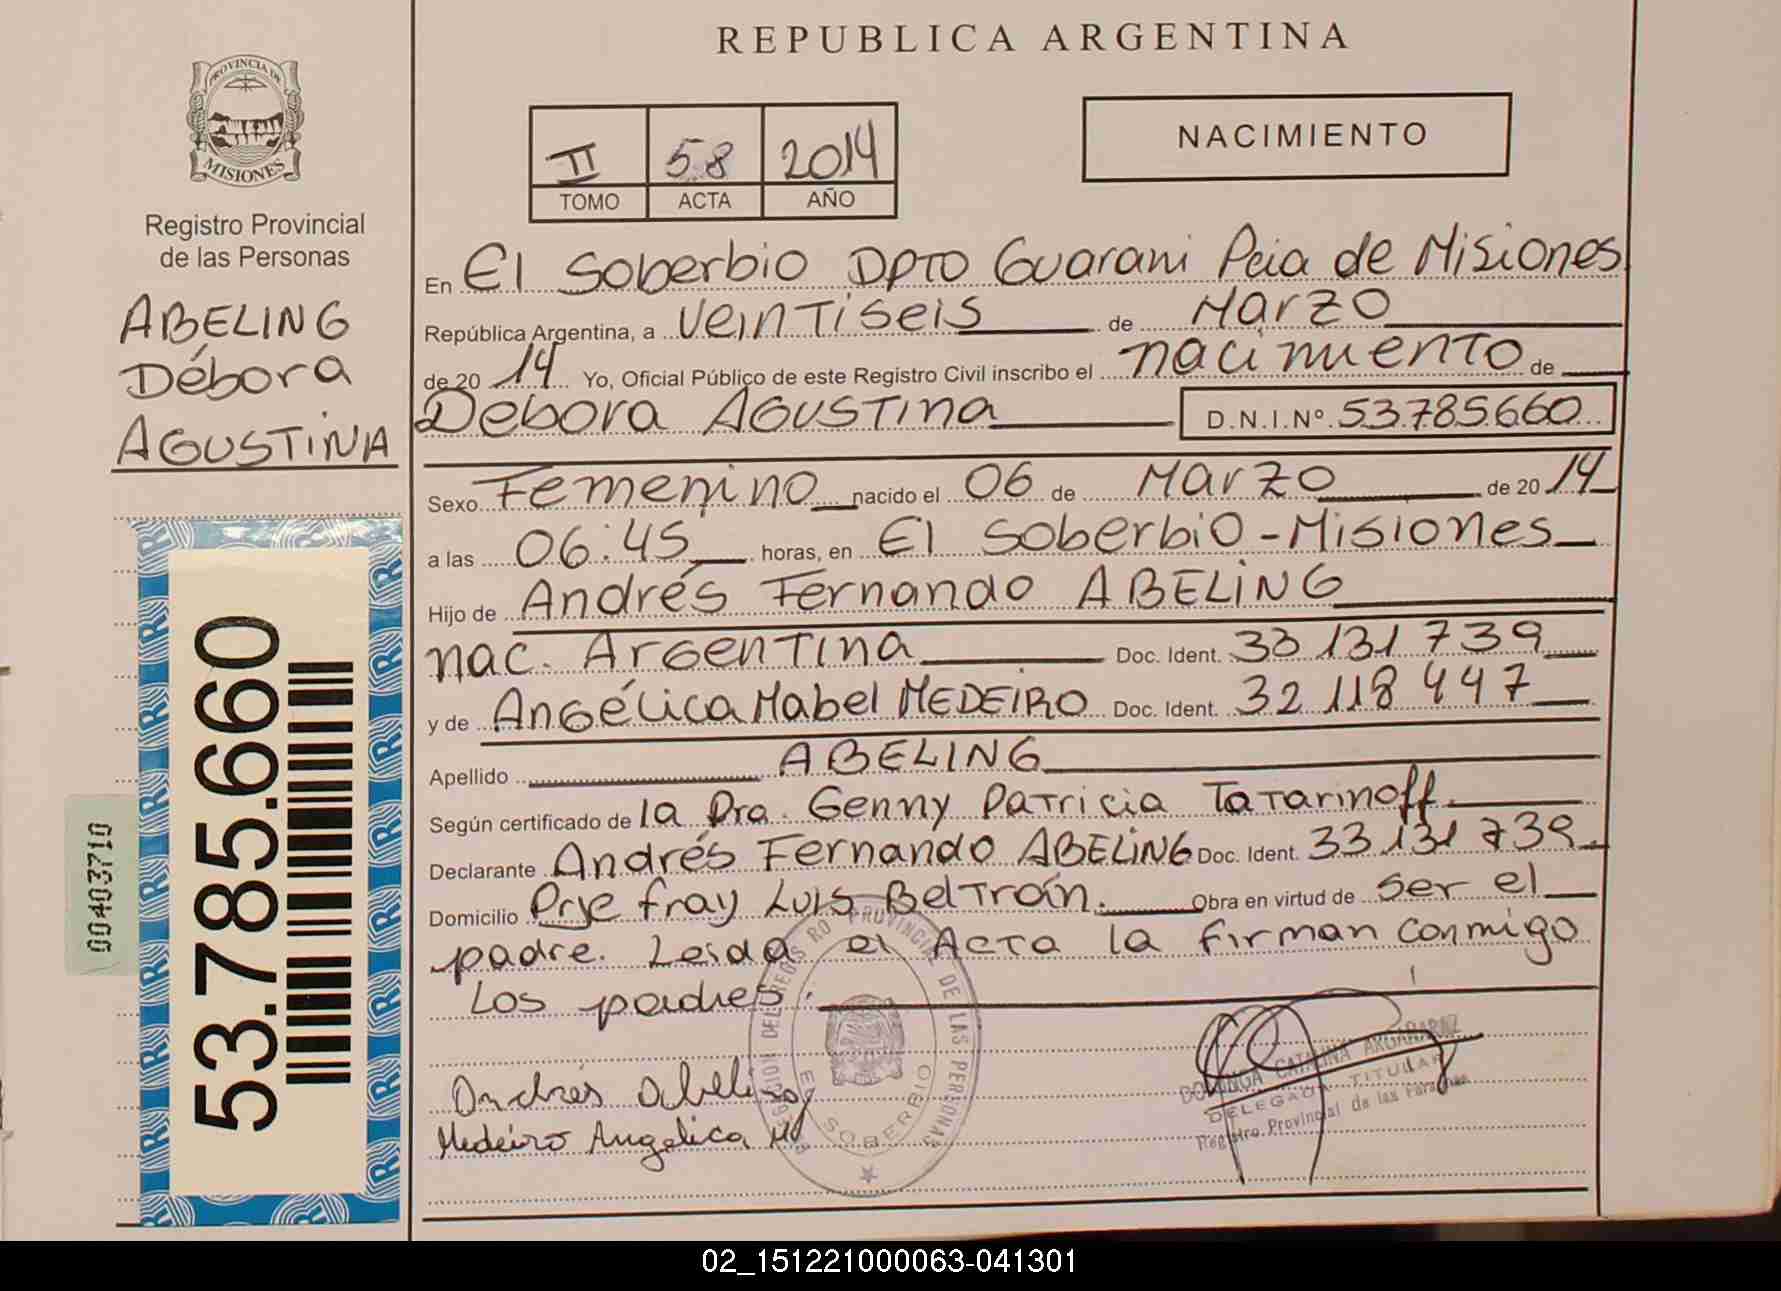 REPUBLICA ARGENTINA
PROVINCIA DE
MISIONES
Registro Provincial
de las Personas
ABELING
Débora
AGUSTINA
II 58 2014
TOMO ACTA AÑO
NACIMIENTO
En El Soberbio DPTO Guarani Pcia de Misiones
República Argentina, a veintiseis de Marzo
de 20 14 Yo, Oficial Público de este Registro Civil inscribo el nacimiento de
Débora AGUSTINA D.N.I.Nº 53785660
Sexo Femenino nacido el 06 de Marzo de 20 14
a las 06:45 horas, en El Soberbio - Misiones
Hijo de Andrés Fernando ABELING
nac. Argentina Doc. Ident. 33 131 739
y de Angélica Mabel MEDEIRO Doc. Ident. 32 118 447
Apellido ABELING
Según certificado de la Dra. Genny Patricia Tatarinoff.
Declarante Andrés Fernando ABELING Doc. Ident. 33 131 739
Domicilio Prje fray Luis Beltrán. Obra en virtud de ser el
padre. Leida el Acta la firman conmigo
Los padres.
Andrés Abeling
Medeiro Angelica M
PROVINCIAL DE LAS PERSONAS
EL SOBERBIO
CATALINA
DELEGADA TITULAR
Registro Provincial de las Personas
53.785.660
00403710
02_151221000063-041301